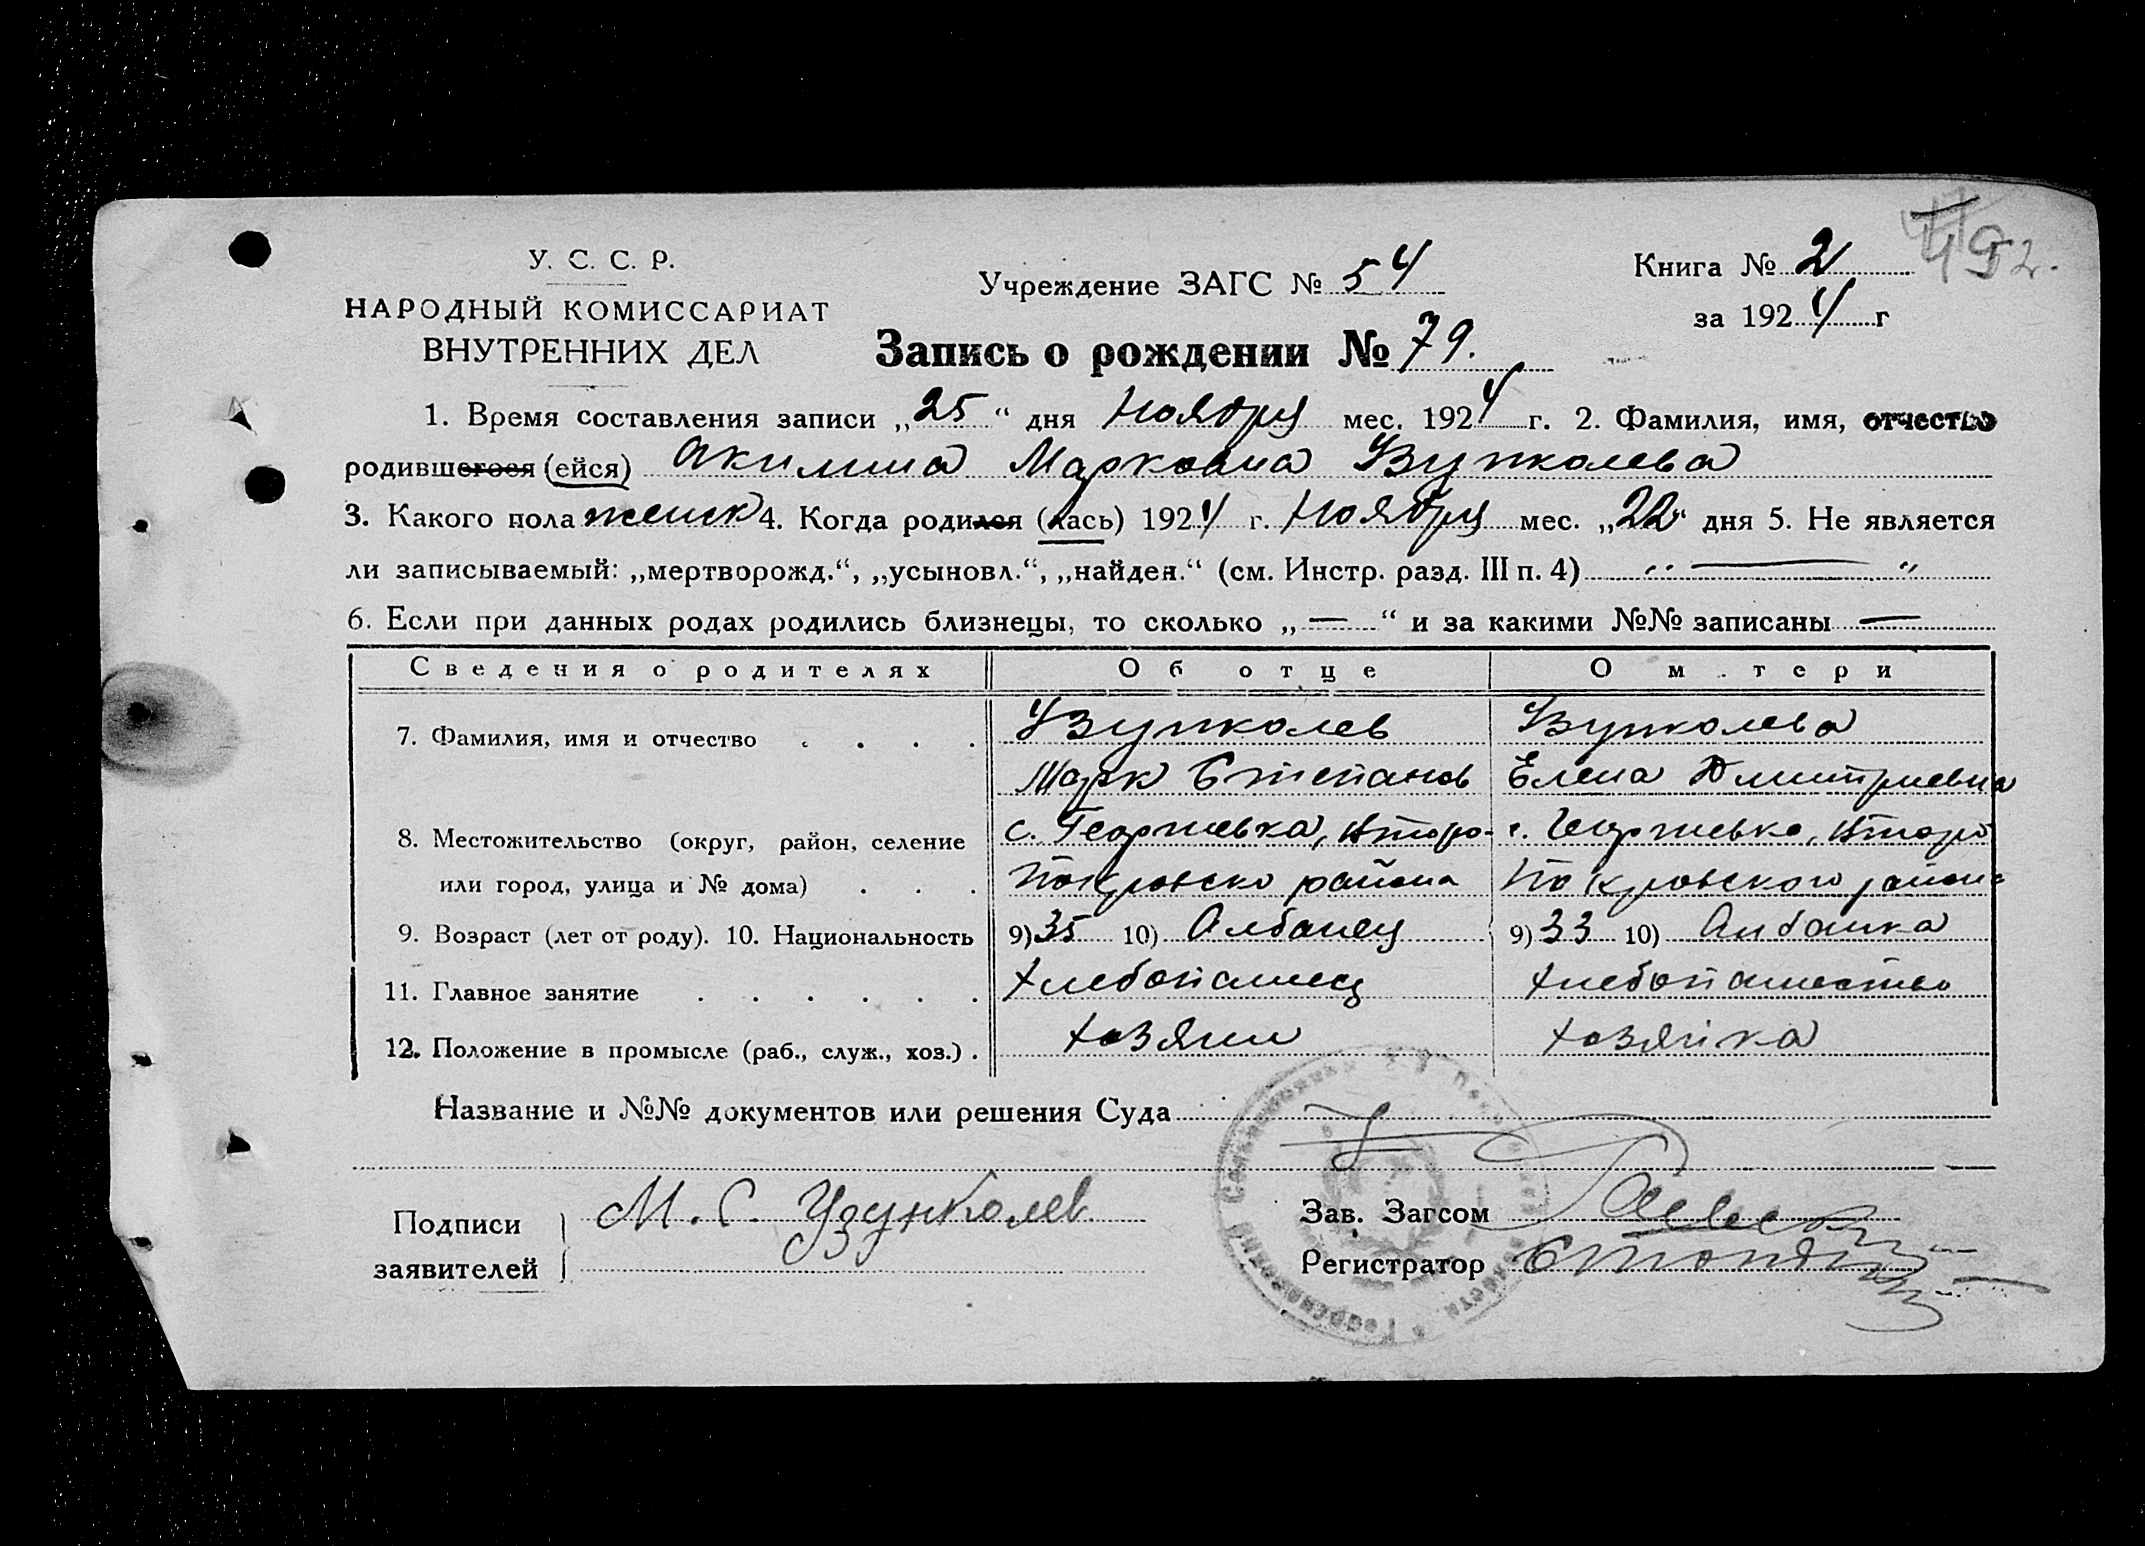 У. С. С. Р.
НАРОДНЫЙ КОМИССАРИАТ
ВНУТРЕННИХ ДЕЛ
Учреждение ЗАГС № 54
Книга № 2
за 1924 г
Запись о рождении № 79.
1. Время составления записи „25“ дня Ноября мес. 1924 г. 2. Фамилия, имя, отчество
родившегося (ейся) Акилина Марковна Узунколева
3. Какого пола женск 4. Когда родился (лась) 1924 г. Ноября мес. „22“ дня 5. Не является
ли записываемый: „мертворожд.“, „усыновл.“, „найден.“ (см. Инстр. разд. III п. 4) „ — “
6. Если при данных родах родились близнецы, то сколько „ — “ и за какими №№ записаны —
Сведения о родителях Об отце О м тери
7. Фамилия, имя и отчество . . . . Узунколев Узунколева
Марк Степанов Елена Дмитриевна
8. Местожительство (округ, район, селение с. Георгиевка, Второ- с. Георгиевка, Второ
или город, улица и № дома) . . . Покровско района Покровского района
9. Возраст (лет от роду). 10. Национальность 9) 35 10) Албанец 9) 33 10) Албанка
11. Главное занятие . . . . . . Хлебопашец Хлебопашество
12. Положение в промысле (раб., служ., хоз.) . Хозяин Хозяйка
Название и №№ документов или решения Суда
Подписи М. С. Узунколев Зав. Загсом
заявителей Регистратор